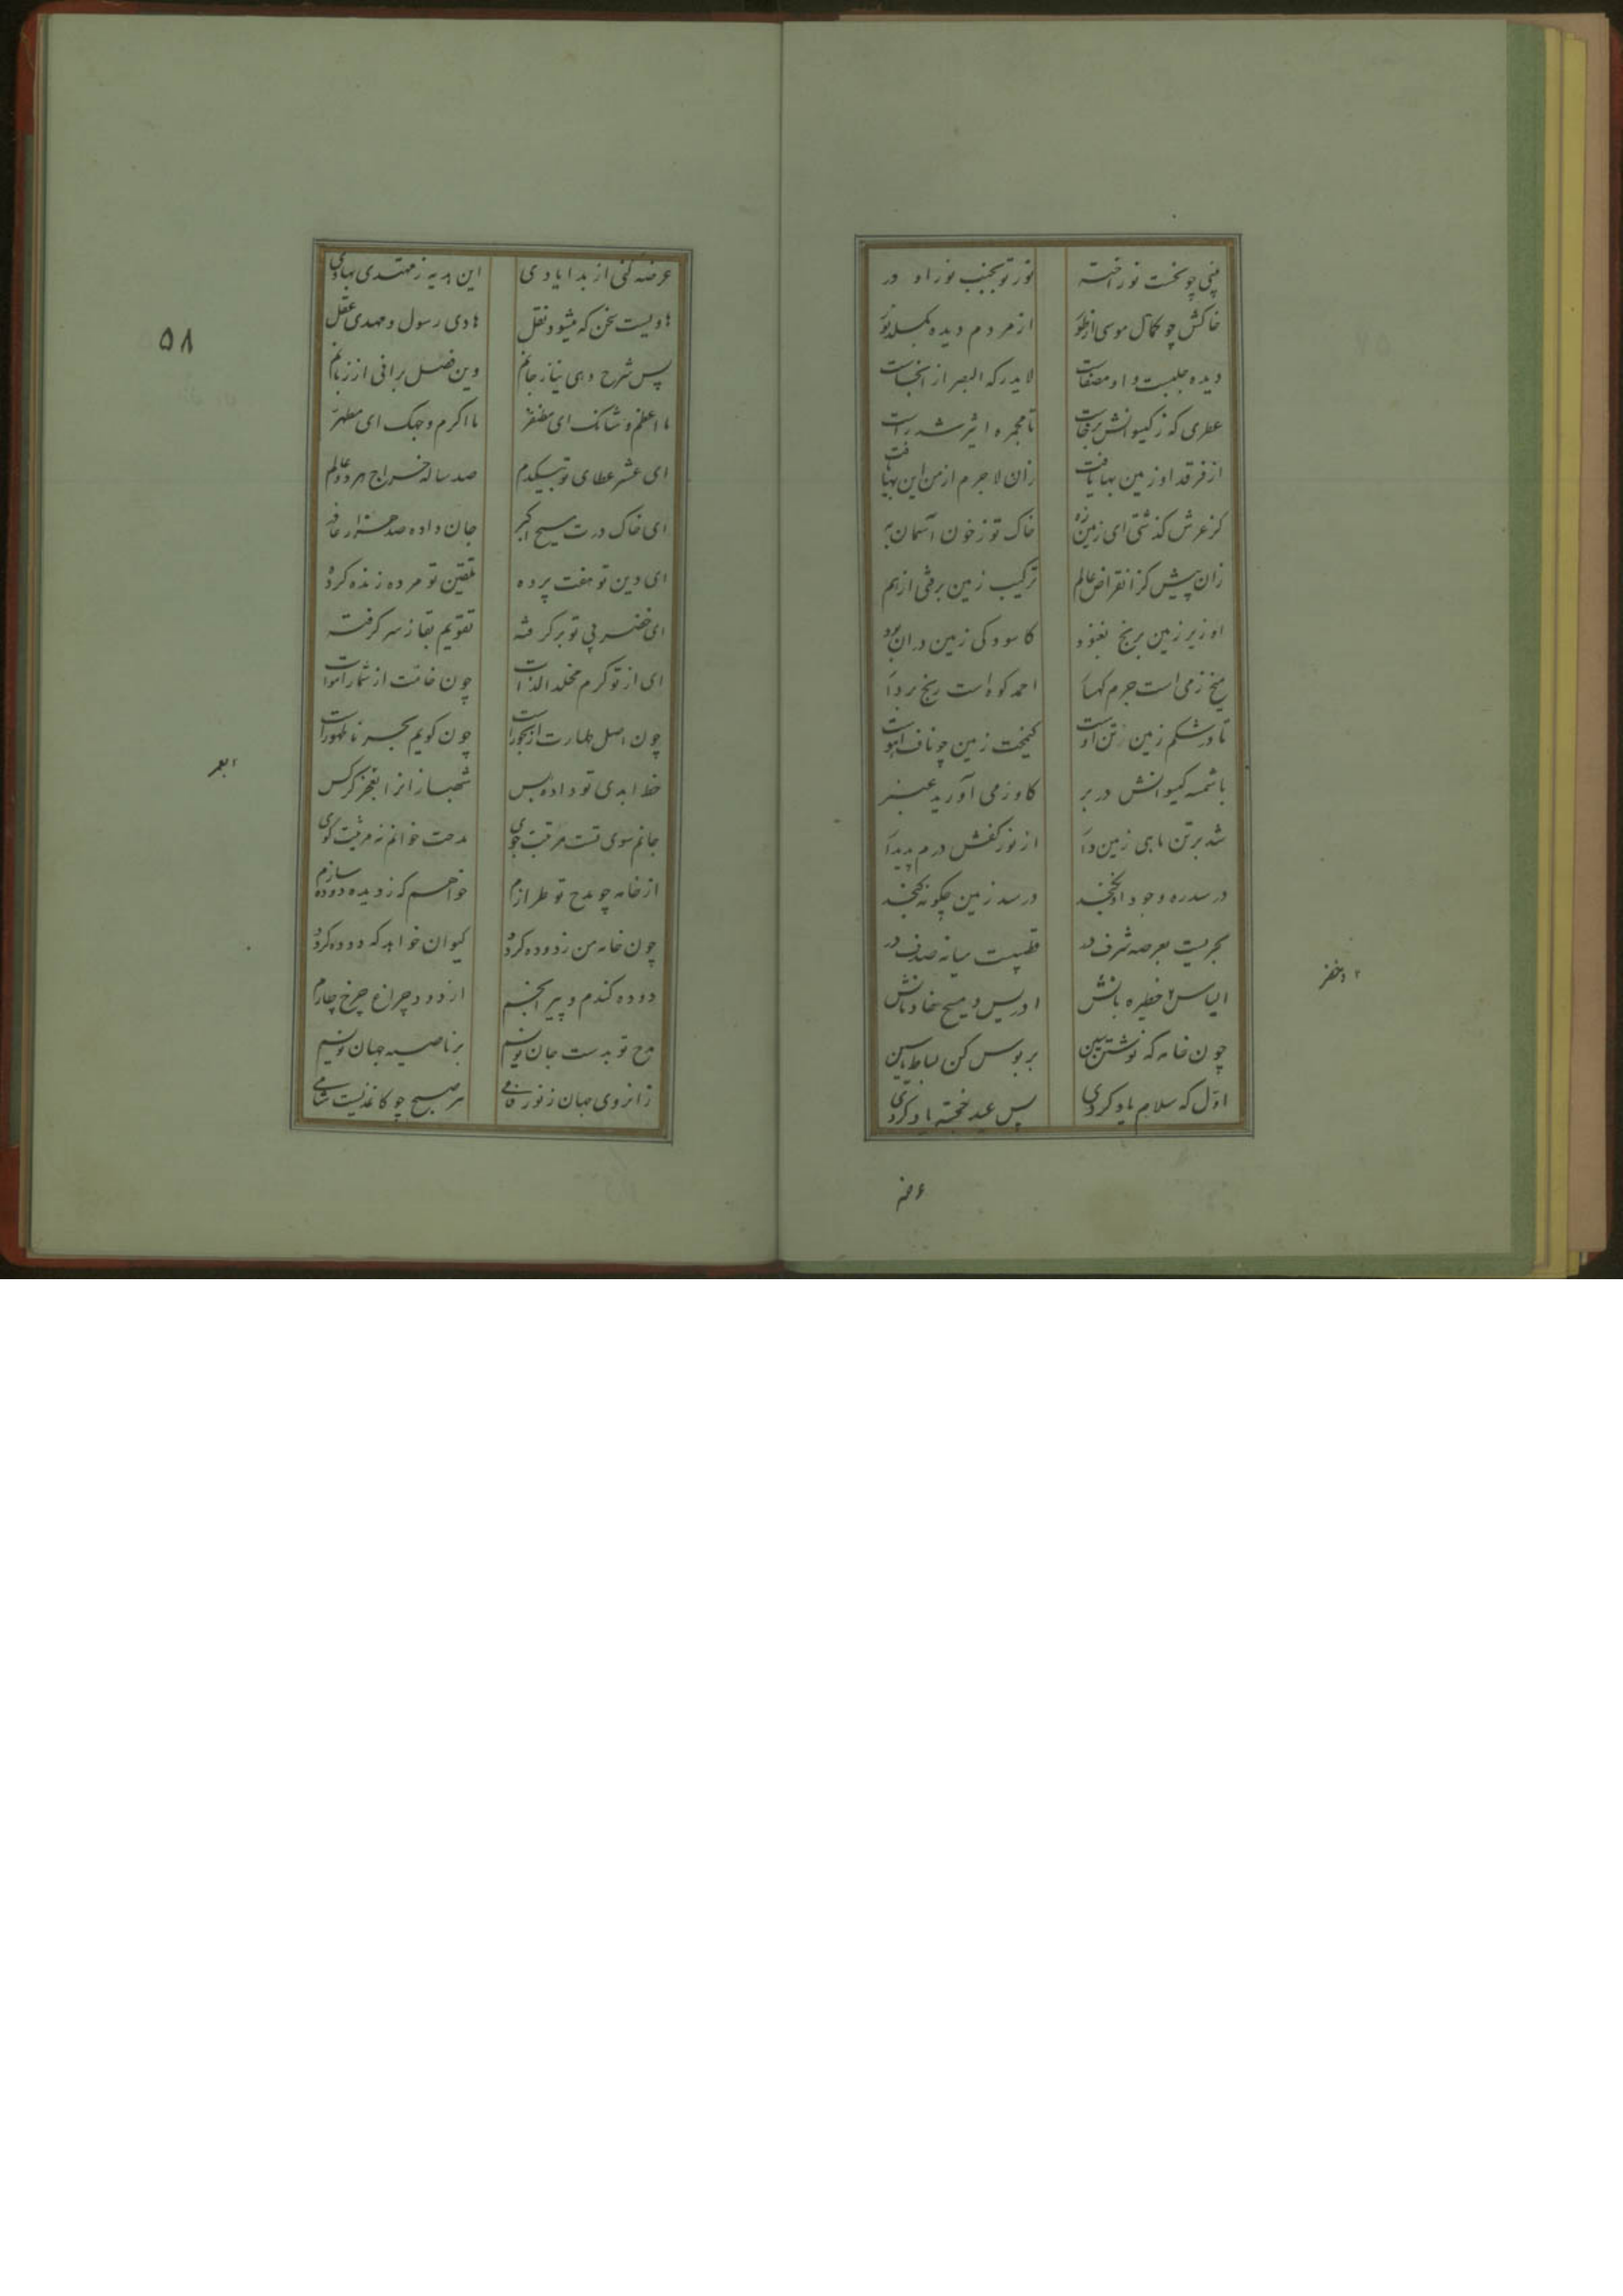 بینی چو نخست نور اختر نور تو بجنب نور او در
خاکش چو کحال موسی از طور از مردم دیده بگسلد نور
دیده جلبست و او مصفاست لا یدرکه البصر از انجاست
عطری که ز کیسوانش برخاست تا مجمره اثیر شد راست
از فرقد او زمین بها یافت زان لاجرم از من این بها یافت
کز عرش کذشتی ای زمین زه خاک تو ز خون آسمان به
زان پیش کز انقراض عالم ترکیب زمین برفتی از هم
او زیر زمین برنج نغنود کاسودکی زمین در ان بود
میخ زمی است جرم کهسار احمد کوه است رنج بردار
تا در شکم زمین تن اوست کیمخت زمین چو ناف آهوست
با شمه کیسوانش در بر کاو زمی آورید عنبر
شد بر تن ماهی زمین دار از نور کفش درم پدیدار
در سدره وجود او نکنجد در سد زمین چکونه کنجد
بحریست بعرصه شرف در قطبیست میانه صدف در
الیاس ۲ خطیره بانش ادریس و مسیح خادمانش
۲ و خضر
چون خامه که نوشتن بین بر بوس کن بساط یاسین
اول که سلام یاد کردی پس عید خجسته یاد کردی
عرضه
عرضه کنی از بد ایادی این هدیه ز مهتدی بهادی
هادیست سخن که میشود نقل هادی رسول و مهدی عقل
۵۸
پس شرح دهی نیاز جانم وین فصل برانی از زبانم
ما اعظم شانک ای مظفر ما اکرم وجهک ای مطهر
ای عشر عطای تو بیکدم صد ساله خراج هر دو عالم
ای خاک درت مسیح اکبر جان داده صد هزار عاذر
ای دین تو هفت پرده تلقین تو مرده زنده کرده
ای خضر پی تو برکرفته تقویم بقا ز سر کرفته
ای از تو کرم مخلد الذات چون خاتمت از شمار اموات
چون اصل طهارت از بحورات چون کویم بحر ناطهورات
خط ابدی تو داده بس شهبازانرا ا بغجر کرکس
ا بعمر
جانم سوی تست مرتبت جوی مدحت خوانم نه مرثیت کوی
از خامه چو مدح تو طرازم خواهم که ز دیده دوده سازم
چون خامه من ز دوده کرده کیوان خواهد که دوده کرده
دوده کندم دبیر انجم از دود چراغ چرخ چارم
مدح تو بدست جان نویسم بر ناصیه جهان نویسم
زانروی جهان ز نور فامی هر صبح چو کاغذیست شامی